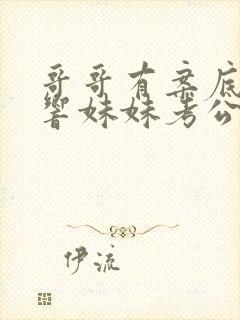 哥哥有案底
响妹妹考公
伊流